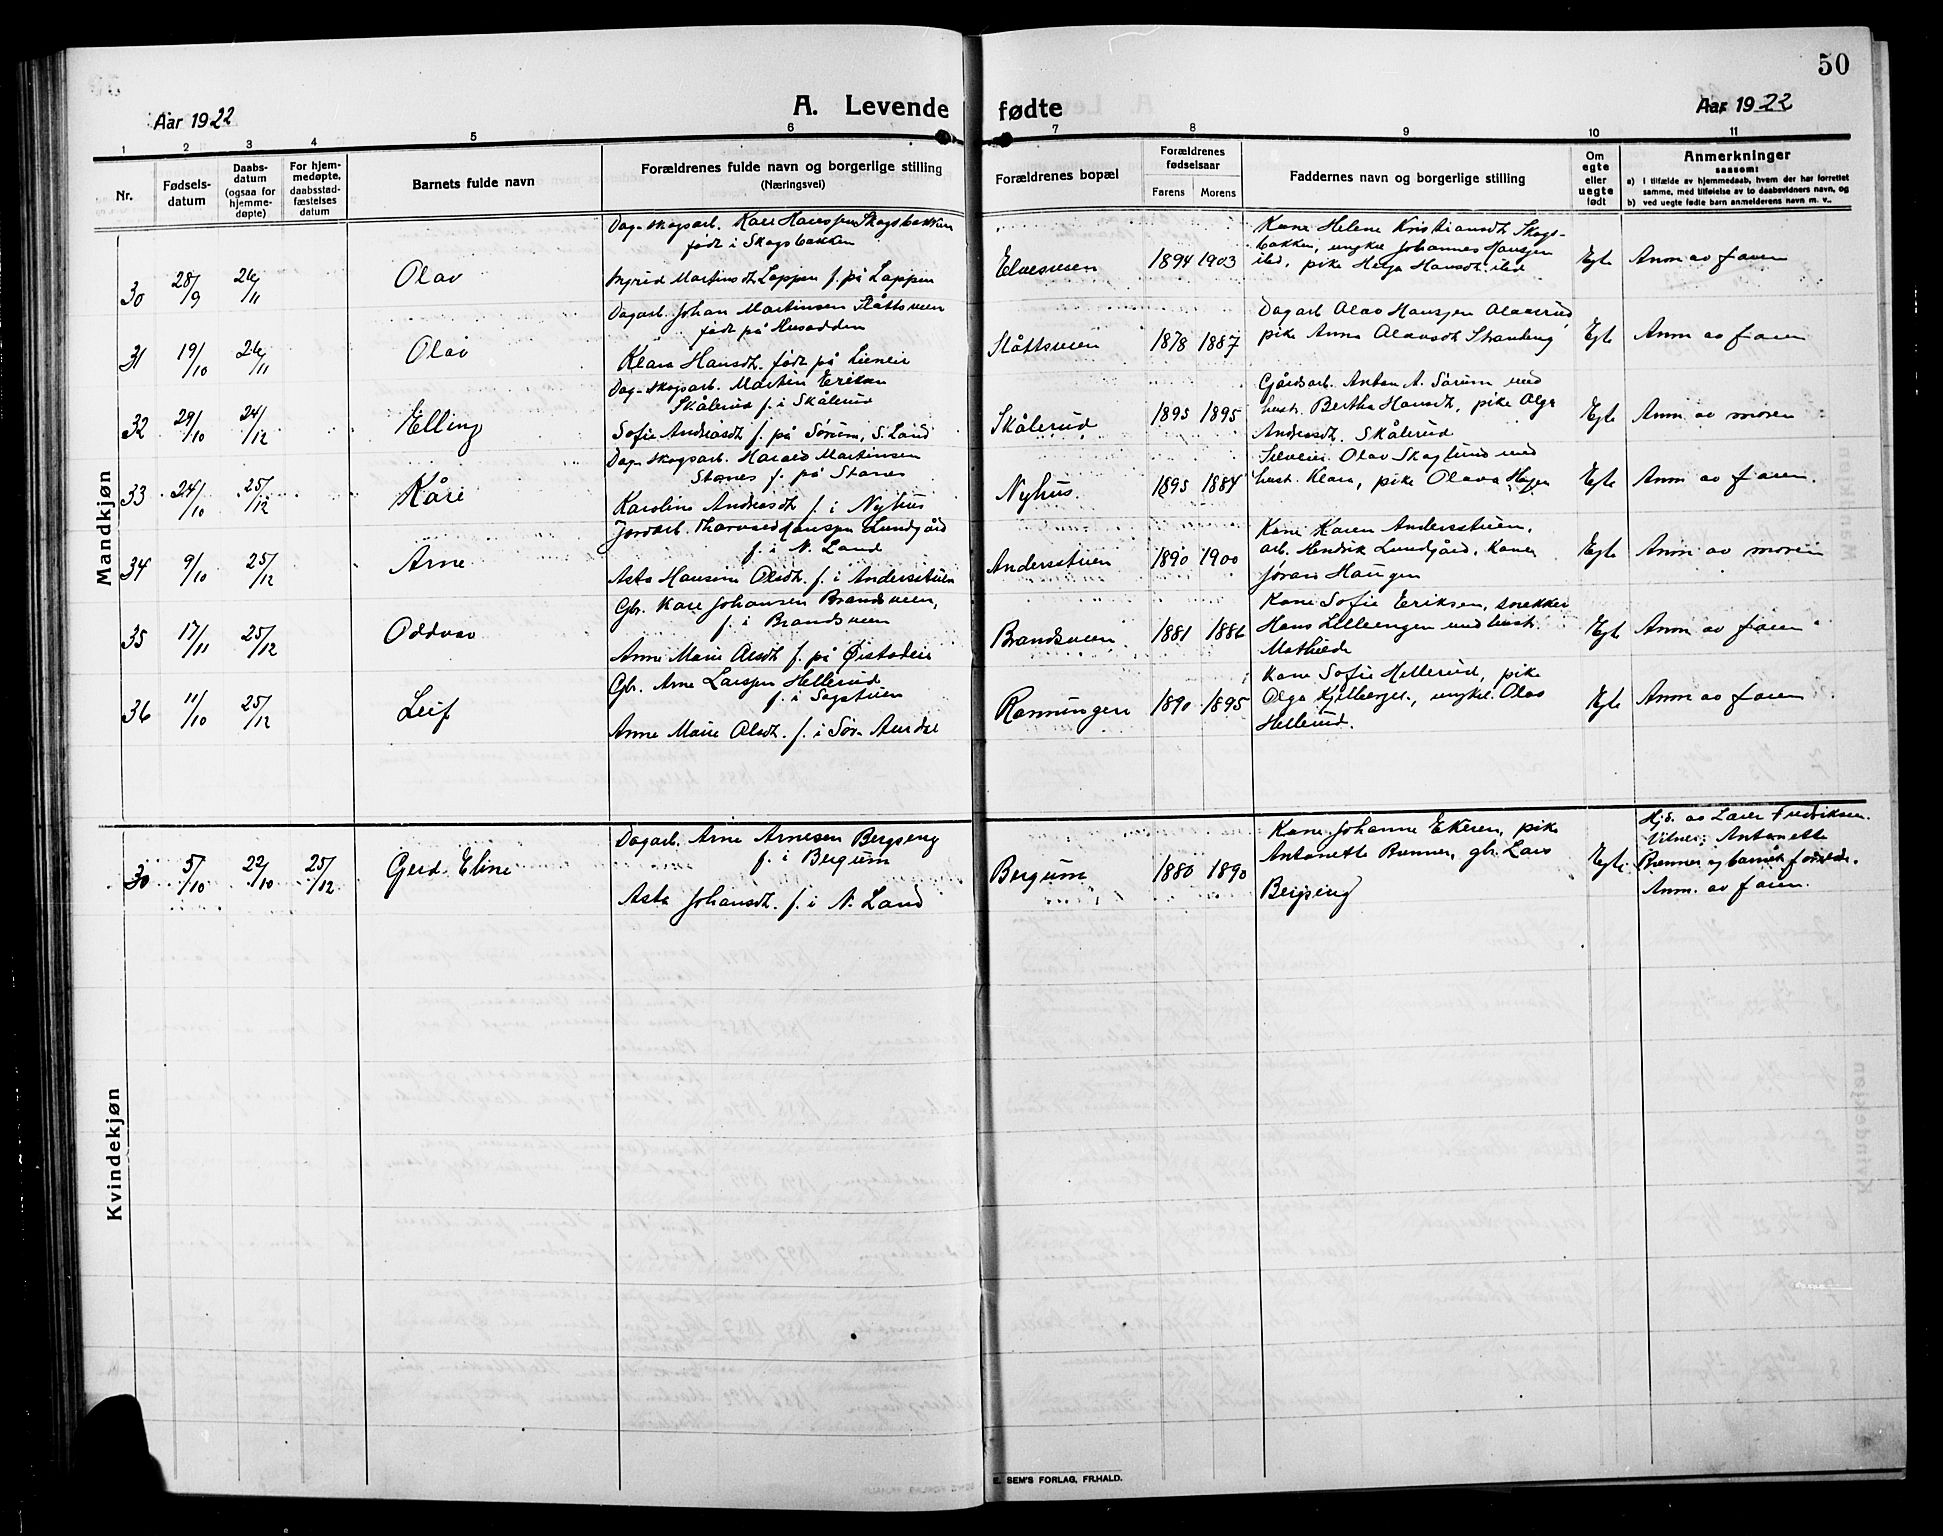 50
Aar 1922
A. Levende fødte
Aar 1922
1 2 3 4 5 6 7 8 9 10 11
Nr.
Fødsels-
datum
Daabs-
datum
(ogsaa for
hjemme-
døpte)
For hjem-
medøpte,
daabsstad-
fæstelses
datum
Barnets fulde navn
Forældrenes fulde navn og borgerlige stilling
(Næringsvei)
Forældrenes bopæl
Forældrenes
fødselsaar
Farens Morens
Faddernes navn og borgerlige stilling
Om
egte
eller
uegte
født
Anmerkninger
saasom:
a) i tilfælde av hjemmedaab, hvem der har forrettet
samme, med tilføielse av to daabsvidners navn, og
b) ved uegte fødte barn anmelderens navn m. v..
Mandkjøn
30 28/9 26/11 Olav
Dag-skogsarb. Kåre Hanssen Skogsbakken
født i Skogsbakken
Ingrid Martinsdt. Lappen f. på Lappen
Elvesveen 1894 1903
Kone Helene Kristiansdt. Skogs-
bakken, ungkar Johannes Hansen
ibd., pike Helga Hansdt. ibd.
Egte Anm av faren
31 19/10 26/11 Olav
Dagarb. Johan Martinsen Slåttsveen
født på Husodden
Klara Hansdt. født på Lieneie
Slåttsveen 1878 1887
Dagarb Olav Hansen Olaverud,
pike Anna Olavsdt. Strandeng
Egte Anm av faren
32 29/10 24/12 Elling
Dag-skogsarb. Martin Eriksen
Skålerud f. i Skålerud
Sofie Andreasdt f. på Sørum, S. Land
Skålerud 1895 1895
Gårdsarb. Anton A. Sørum med
hust. Bertha Hansdt, pike Olga
Andreasdt. Skålerud
Egte Anm av moren
33 24/10 25/12 Kåre
Dag-skogsarb. Harald Martinsen
Stones f. på Stones
Karoline Andreasdt f. i Nyhus
Nyhus 1895 1884
Selveier Olav Skoglund med
hust. Klara, pike Olava Hagen
Egte Anm av faren.
34 9/10 25/12 Arne
Jordarb. Thorvald Hanssen Lundgård
f. i N. Land
Asta Hansine Olsdt. f. i Andersstuen
Andersstuen 1890 1900
Kone Karen Andersstuen,
arb. Hendrik Lundgård, Kone
Jøran Haugen
Egte Anm av moren
35 17/11 25/12 Oddvar
Gbr. Kåre Johansen Brandsveen,
f. i Brandsveen
Anne Marie Olsdt f. på Øistadeie
Brandsveen 1881 1886
Kone Sofie Eriksen, snekker
Hans Lilleengen med hust.
Mathilde
Egte Anm av faren
36 11/10 25/12 Leif
Gbr. Arne Larssen Hellerud
f. i Sagstuen
Anne Marie Olsdt. f. i Sør-Aurdal
Rønningen 1890 1895
Kone Sofie Hellerud, pike
Olga Kjelberget, ungkar Olav
Hellerud.
Egte Anm av faren
Kvindekjøn
30 5/10 22/10 25/12 Gerd Eline
Dagarb. Arne Arnesen Bergseng
f. i Bergum
Asta Johansdt. f. i N. Land
Bergum 1880 1890
Kone Johanne Ekeren, pike
Antonette Brenner, gbr. Lars
Bergseng
Egte
Hjd. av Lærer Fredriksen.
Vitner: Antonette
Brenner og barnets forældre.
Anm. av faren.
E. SEM'S FORLAG, FR.HALD.